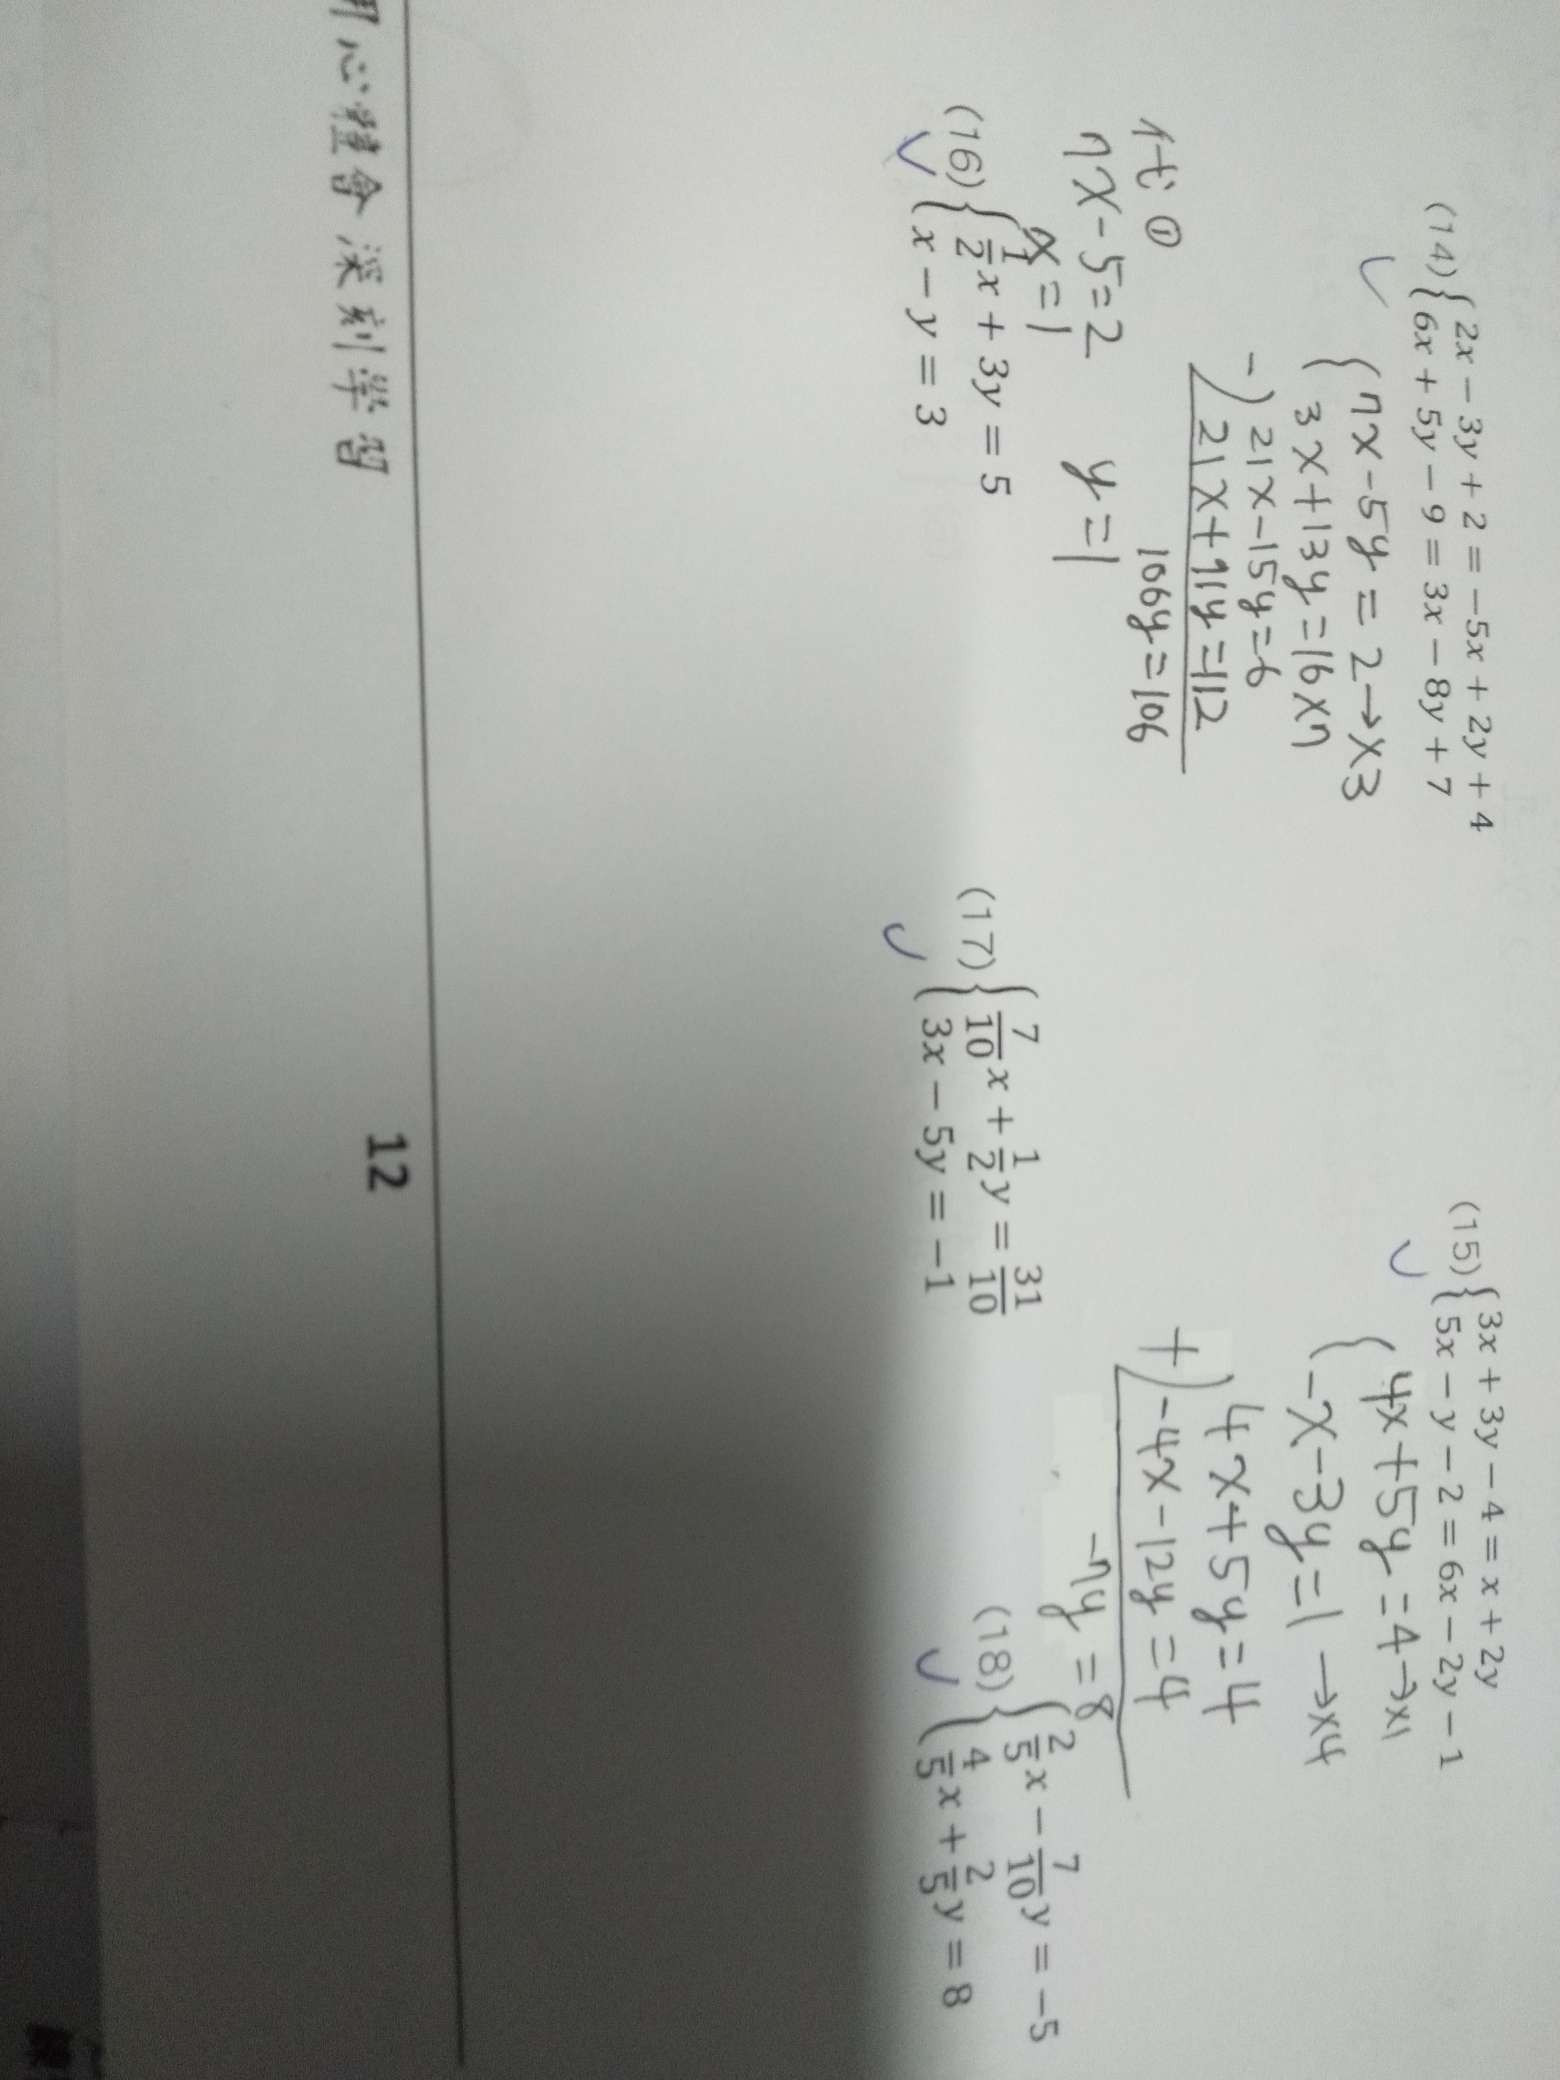 (14) { 2x − 3y + 2 = −5x + 2y + 4
6x + 5y − 9 = 3x − 8y + 7
{ 7x-5y=2→×3
3x+13y=16×7
21x-15y=6
-) 21x+91y=112
106y=106
代①
7x-5=2 y=1
x=1
(15) { 3x + 3y − 4 = x + 2y
5x − y − 2 = 6x − 2y − 1
{ 4x+5y=4→×1
-x-3y=1→×4
4x+5y=4
+) -4x-12y=4
-7y=8
(16) { 1/2 x + 3y = 5
x − y = 3
(17) { 7/10 x + 1/2 y = 31/10
3x − 5y = −1
(18) { 2/5 x − 7/10 y = −5
4/5 x + 2/5 y = 8
心體會 深刻學習
12